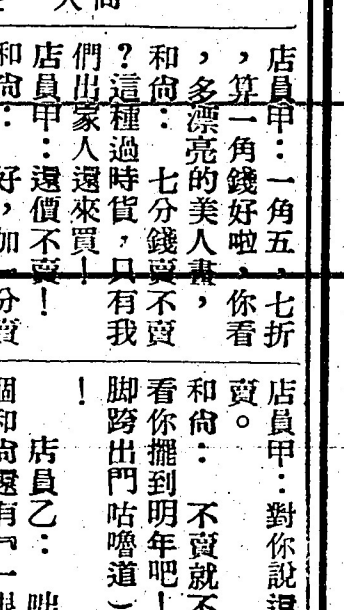 店員甲：一角五，七折
，算一角錢好啦，你看
，多漂亮的美人畫，
和尙：　七分錢賣不賣
？這種過時貨，只有我
們出家人還來買！
店員甲：還價不賣！
和尙：　好，加一分賣
店員甲：對你說還
賣。
和尙：　不賣就不
看你擺到明年吧！
脚跨出門咕嚕道
！
店員乙：　咄
個和尙還有「一